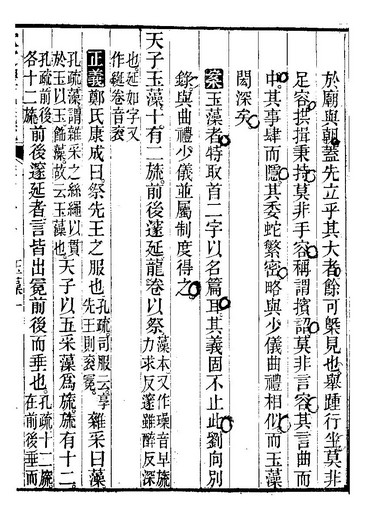 於廟與朝蓋先立乎其大者餘可槩見也舉踵行坐莫非
足容拱揖秉持莫非手容稱謂擯詔莫非言容其言曲而
中其事肆而隱其委蛇繁密略與少儀曲禮相似而玉藻
閎深矣
案玉藻者特取首二字以名篇耳其義固不止此劉向別
錄與曲禮少儀並屬制度得之
天子玉藻十有二旒前後邃延龍卷以祭藻本又作璪音早旒
力求反邃雖醉反深
也延如字又
作綖卷音衮
正義鄭氏康成曰祭先王之服也孔疏司服云享
先王則衮冕雜采曰藻
孔疏藻謂雜采之絲繩以貫
於玉以玉飾藻故云玉藻也天子以五采藻爲旒旒有十二
孔疏前後
各十二旒前後邃延者言皆出冕前後而垂也孔疏十二旒
在前後垂而
玉藻一